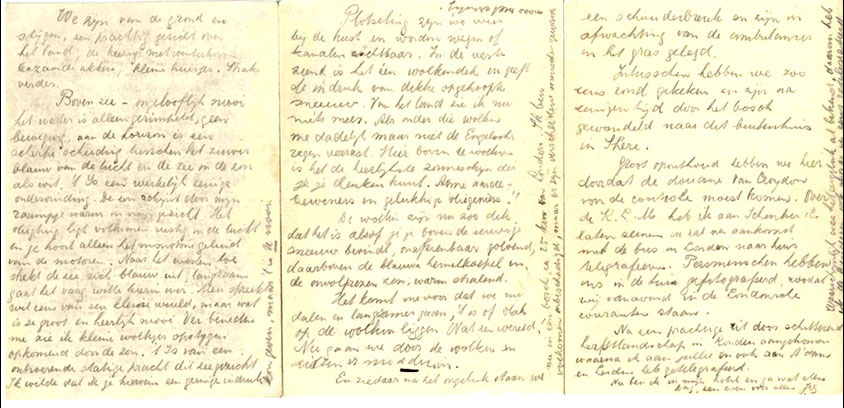 We zijn van de grond en
stijgen, een prachtig gezicht over
het land, de heerlijk met winterkoren
bezaaide akkers, kleine huisjes. Straks
verder.
Boven zee - ongelooflijk mooi
het water is alleen gerimpeld, geen
beweging, aan de horizon is een
scherpe scheiding tusschen het zuiver
blauw van de lucht en de zee in de zon
als wit. 't Is een werkelijk eenige
ondervinding. De zon schijnt door mijn
raampje warm in mijn gezicht. Het
vliegtuig ligt volkomen rustig in de lucht
en je hoort alleen het monotone geluid
van de motoren. Naar het westen toe
strekt de zee zich blauw uit, langzaam
gaat het vaag witte hierin over. Men spreekt
wel eens van een kleine wereld, maar wat
is ze groot en heerlijk mooi. Ver beneden
me zie ik kleine wolkjes opstijgen
opkomend door de zon. 't Is van een
ontroerende statige pracht dit zeegezicht
Ik wilde dat ik je hiervan een geringe indruk
kon geven, maar 't is te mooi
Plotseling zijn we weer
bij de kust en worden wegen of
kanalen zichtbaar. In de verte
ziend is het een wolkendek en geeft
de indruk van dikke opgehoopte
sneeuw. Van het land zie ik nu
niets meer. Als onder die wolken
me dadelijk maar niet de Engelsche
regen verrast. Hier boven de wolken
is het de heerlijkste zonneschijn die
je je denken kunt. Arme aarde-
bewoners en gelukkige vliegeniers!!
De wolken zijn nu zoo dik,
dat het is alsof je je boven de eeuwige
sneeuw bevindt, onafzienbaar golvend,
daarboven de blauwe hemelkoepel en
de onvolprezen zon, warm stralend.
Het komt me voor dat we nu
dalen en langzamer gaan, 't is of ook
op de wolken liggen. Wat een wereld!
Nu gaan we door de wolken en
zitten er midden in.
En ziedaar na het ongeluk staan we
nu in een bosch, ca 25 km van Londen. Ik ben
volkomen onbeschadigd, maar er zijn verscheidene menschen gewond
een schouderbreuk en zijn in
afwachting van de ambulances
in het gras gelegd.
Intusschen hebben we zoo
eens rond gekeken en zijn na
eenigen tijd door het bosch
gewandeld naar dit buitenhuis
in Shere.
Groot oponthoud hebben we hier
doordat de douane van Croydon
voor de controle moest komen. Over
de K.L.M. heb ik aan Schomber
laten seinen en zal na aankomst
met de bus in Londen naar huis
telegrafeeren. Persmenschen hebben
ons in de tuin gefotografeerd, zoodat
wij vanavond in de Londensche
couranten staan.
Na een prachtige rit door schitterend
herfstlandschap in Londen aangekomen
waarna ik aan jullie en ook aan
en Leiden heb getelegrafeerd.
Nu ben ik in mijn hotel en ga wat eten
Dag, een zoen voor allen